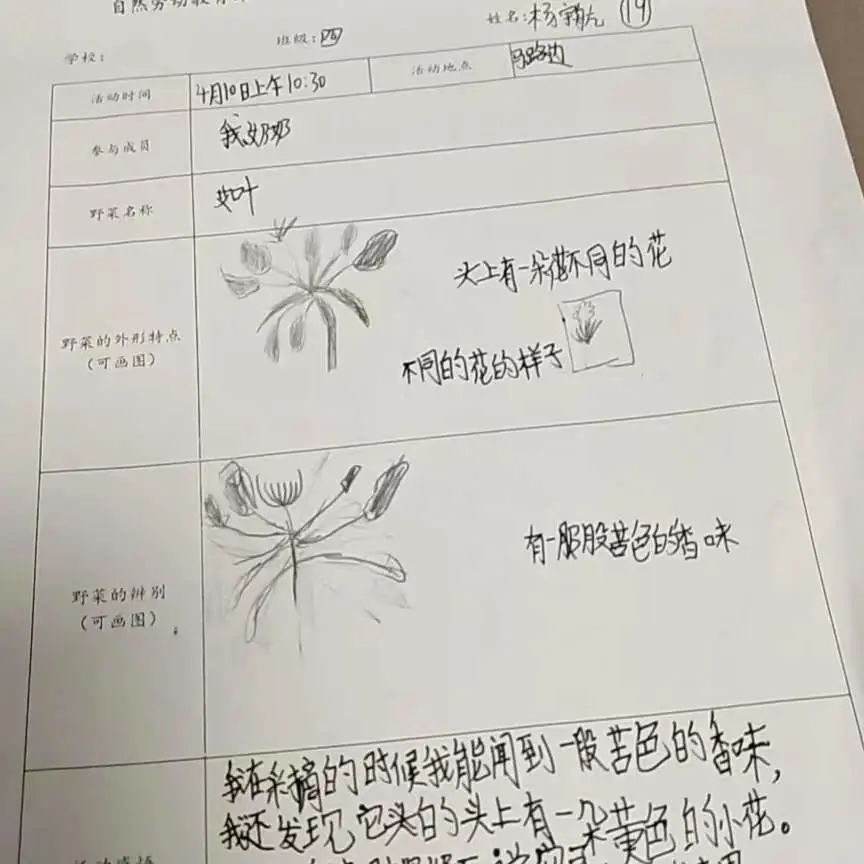 自然劳动教育
学校：
班级：四
姓名：杨
19
活动时间
4月10日上午10:30
活动地点
马路边
参与成员
我奶奶
野菜名称
艾叶
野菜的外形特点
（可画图）
头上有一朵不同的花
不同的花的样子
野菜的辨别
（可画图）
有一股股苦色的香味
我在采摘的时候我能闻到一股苦色的香味，
我还发现它头的头上有一朵黄色的小花。